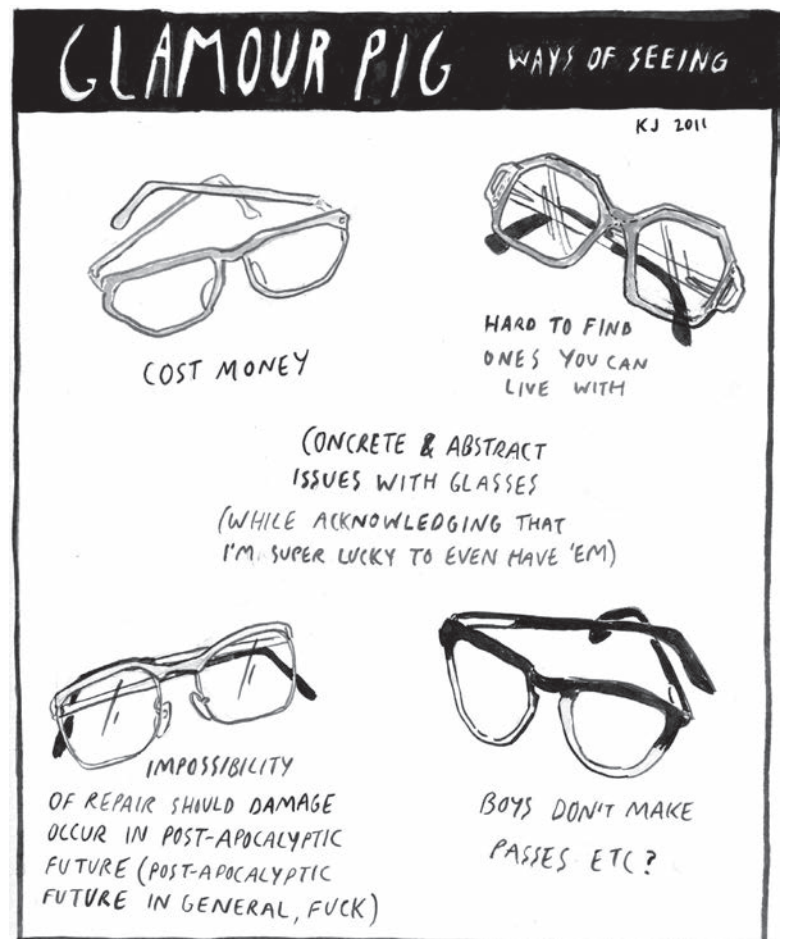 GLAMOUR PIG
WAYS OF SEEING
KJ 2011
COST MONEY
HARD TO FIND
ONES YOU CAN
LIVE WITH
CONCRETE & ABSTRACT
ISSUES WITH GLASSES
(WHILE ACKNOWLEDGING THAT
I'M SUPER LUCKY TO EVEN HAVE 'EM)
IMPOSSIBILITY
OF REPAIR SHOULD DAMAGE
OCCUR IN POST-APOCALYPTIC
FUTURE (POST-APOCALYPTIC
FUTURE IN GENERAL, FUCK)
BOYS DON'T MAKE
PASSES ETC?